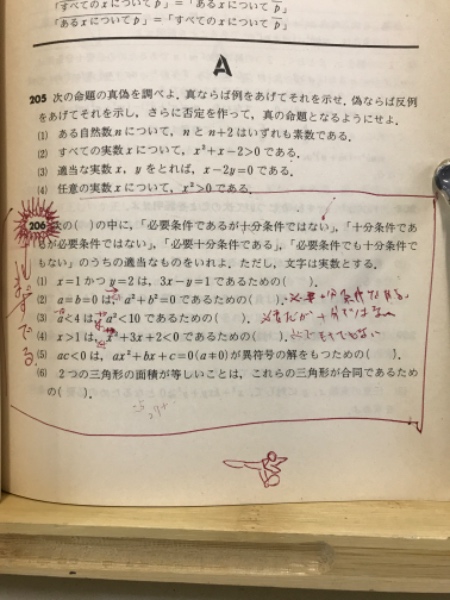 「すべてのxについてp」=「あるxについてp̄」
「あるxについてp」=「すべてのxについてp̄」
A
205 次の命題の真偽を調べよ．真ならば例をあげてそれを示せ．偽ならば反例
をあげてそれを示し，さらに否定を作って，真の命題となるようにせよ．
(1) ある自然数nについて，nとn+2はいずれも素数である．
(2) すべての実数xについて，x²+x−2>0である．
(3) 適当な実数x，yをとれば，x−2y=0である．
(4) 任意の実数xについて，x²>0である．
206 次の( )の中に，「必要条件であるが十分条件ではない」，「十分条件であ
るが必要条件ではない」，「必要十分条件である」，「必要条件でも十分条件で
もない」のうちの適当なものをいれよ．ただし，文字は実数とする．
(1) x=1かつy=2は，3x−y=1であるための( )．
(2) a=b=0は，a²+b²=0であるための( )．
(3) a<4は，a²<10であるための( )．
(4) x>1は，x²+3x+2<0であるための( )．
(5) ac<0は，ax²+bx+c=0(a≠0)が異符号の解をもつための( )．
(6) 2つの三角形の面積が等しいことは，これらの三角形が合同であるため
の( )．